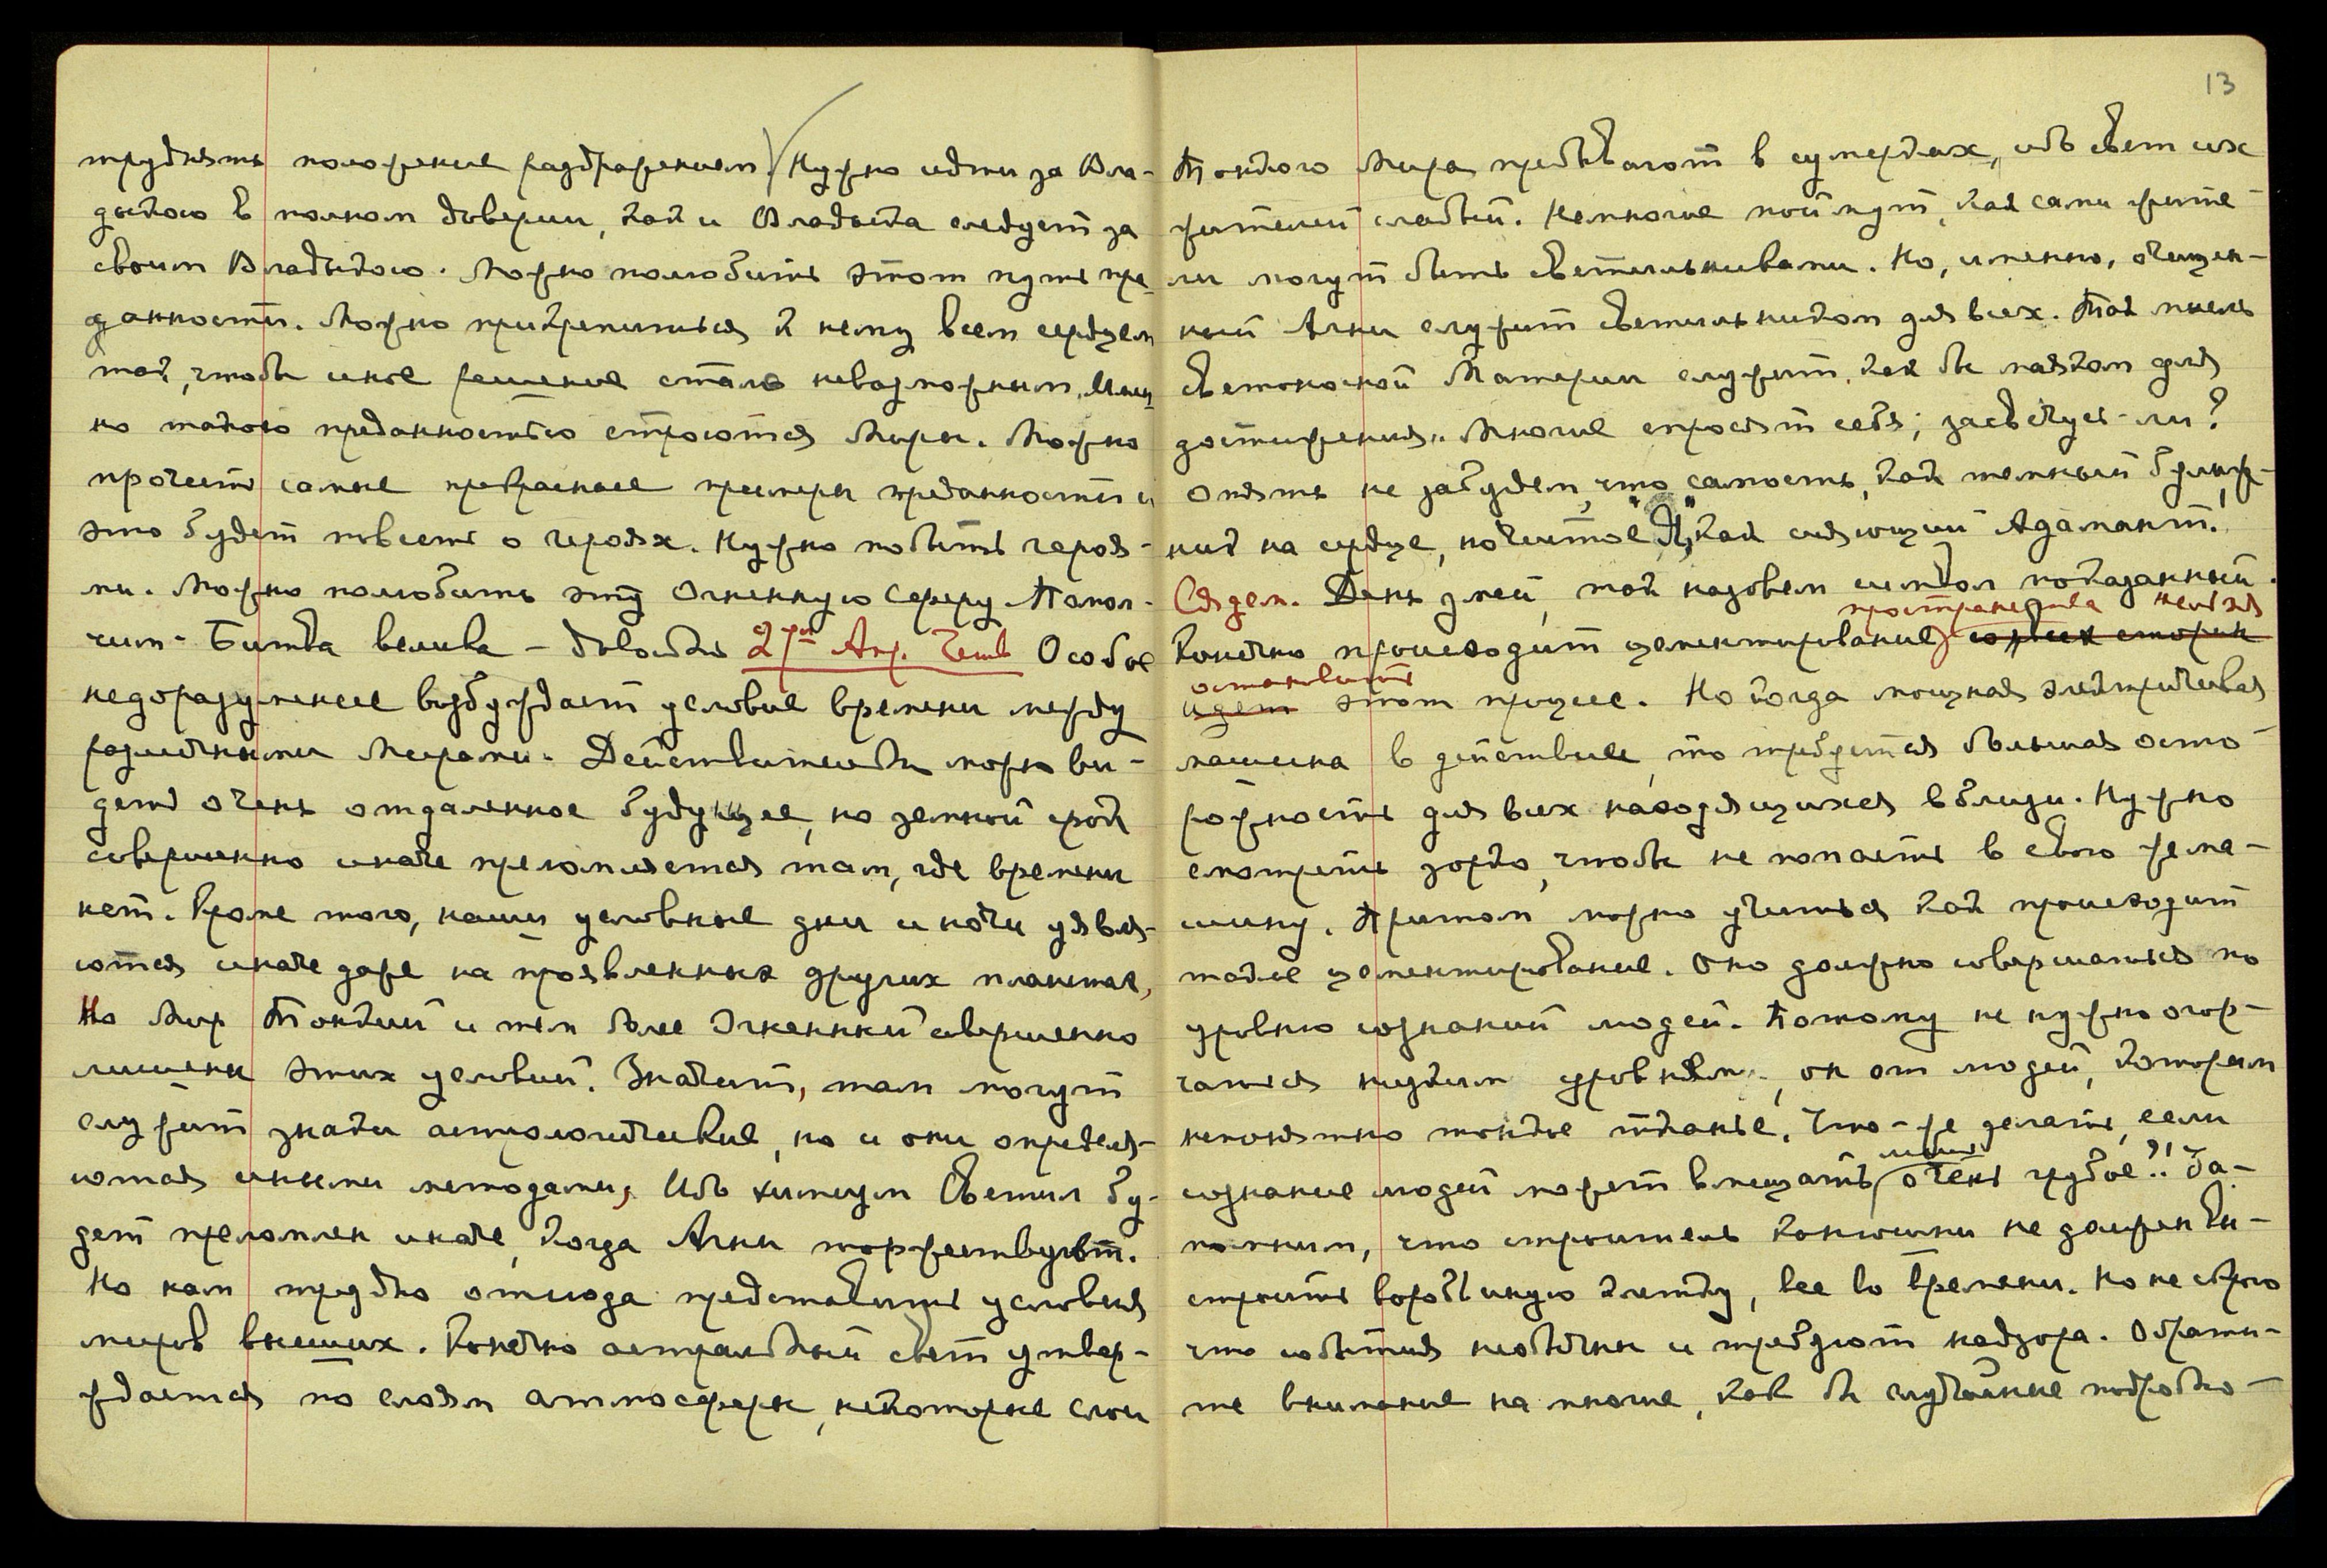 труднять положение раздражением. Нужно идти за Вла-
дыкою в полном доверии, как и Владыка следует за
своим Владыкою. Можно полюбить этот путь пре-
данности. Можно прикрепиться к нему всем сердцем
так, чтобы иное решение стало невозможным. Имен-
но такою преданностью строются Миры. Можно
прочить самые прекрасные примеры преданности и
это будет повесть о героях. Нужно побыть героя-
ми. Можно полюбить эту Огненную Сферу. Помол-
чим - Битва велика - довольно 27го Апр. Четв Особое
недоразумение возбуждает условие времени между
различными Мирами. Действительно можно ви-
деть очень отдаленное будущее, но земной срок
совершенно иначе преломляется там, где времени
нет. Кроме того, наши условные дни и ночи уявля-
ются иначе даже на проявленных других планетах,
Но Мир Тонкий и тем более Огненный совершенно
лишены этих условий. Значит, там могут
служит знаки астрологические, но и они определя-
ются иными методами, Ибо химизм Светил бу-
дет преломлен иначе, когда Агни торжествует.
Но нам трудно отсюда представить условия
миров высших. Конечно астральный свет утвер-
ждается по слоям атмосферы, некоторые слои
13
Тонкого Мира пребывают в сумерках, ибо свет их
жителей слабый. Немногие поймут, как сами жите-
ли могут быть светильниками. Но, именно, очищен-
ный Агни служит светильником для всех. Так мысль
светоносной Материи служит, как бы маяком для
достижения. Многие спросят себя; засвечусь-ли?
Опять не забудем, что самость, как темный булыж-
ник на сердце, но чистое "Я", как сияющий Адамант!
Сядем. День змей, так назовем символ показанный.
пространства нельзя
Конечно происходит цементирование, со всех сторон
остановить
идет этот процес. Но когда мощная электрическая
машина в действие, то требуется большая осто-
рожность для всех находящихся вблизи. Нужно
смотреть зорко, чтобы не попасть в свою же ма-
шину. Притом можно учиться как происходит
такое цементирование. Оно должно совершаться по
уровню сознаний людей. Потому не нужно огор-
чаться низким уровнем, он от людей, которым
непонятно тонкое тканье. Что-же делать, если
лишь
сознание людей может вмещать очень грубое?! За-
помним, что строитель конюшни не должен вы-
строить воробьиную клетку, все во времени. Но не скрою
что события необычны и требуют надзора. Обрати-
те внимание на многие, как бы случайные подробно-